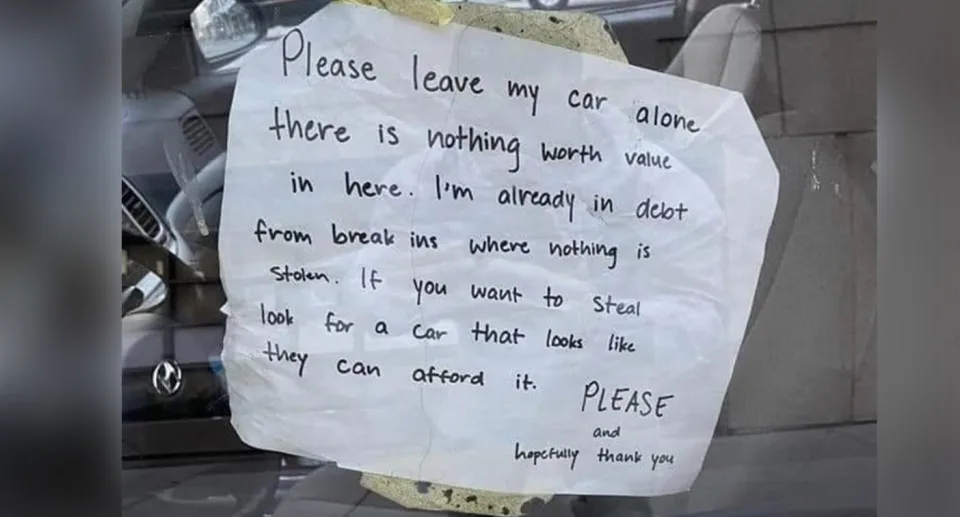 Please leave my car alone
there is nothing worth value
in here. I'm already in debt
from break ins where nothing is
stolen. If you want to steal
look for a car that looks like
they can afford it.
PLEASE
and
hopefully thank you